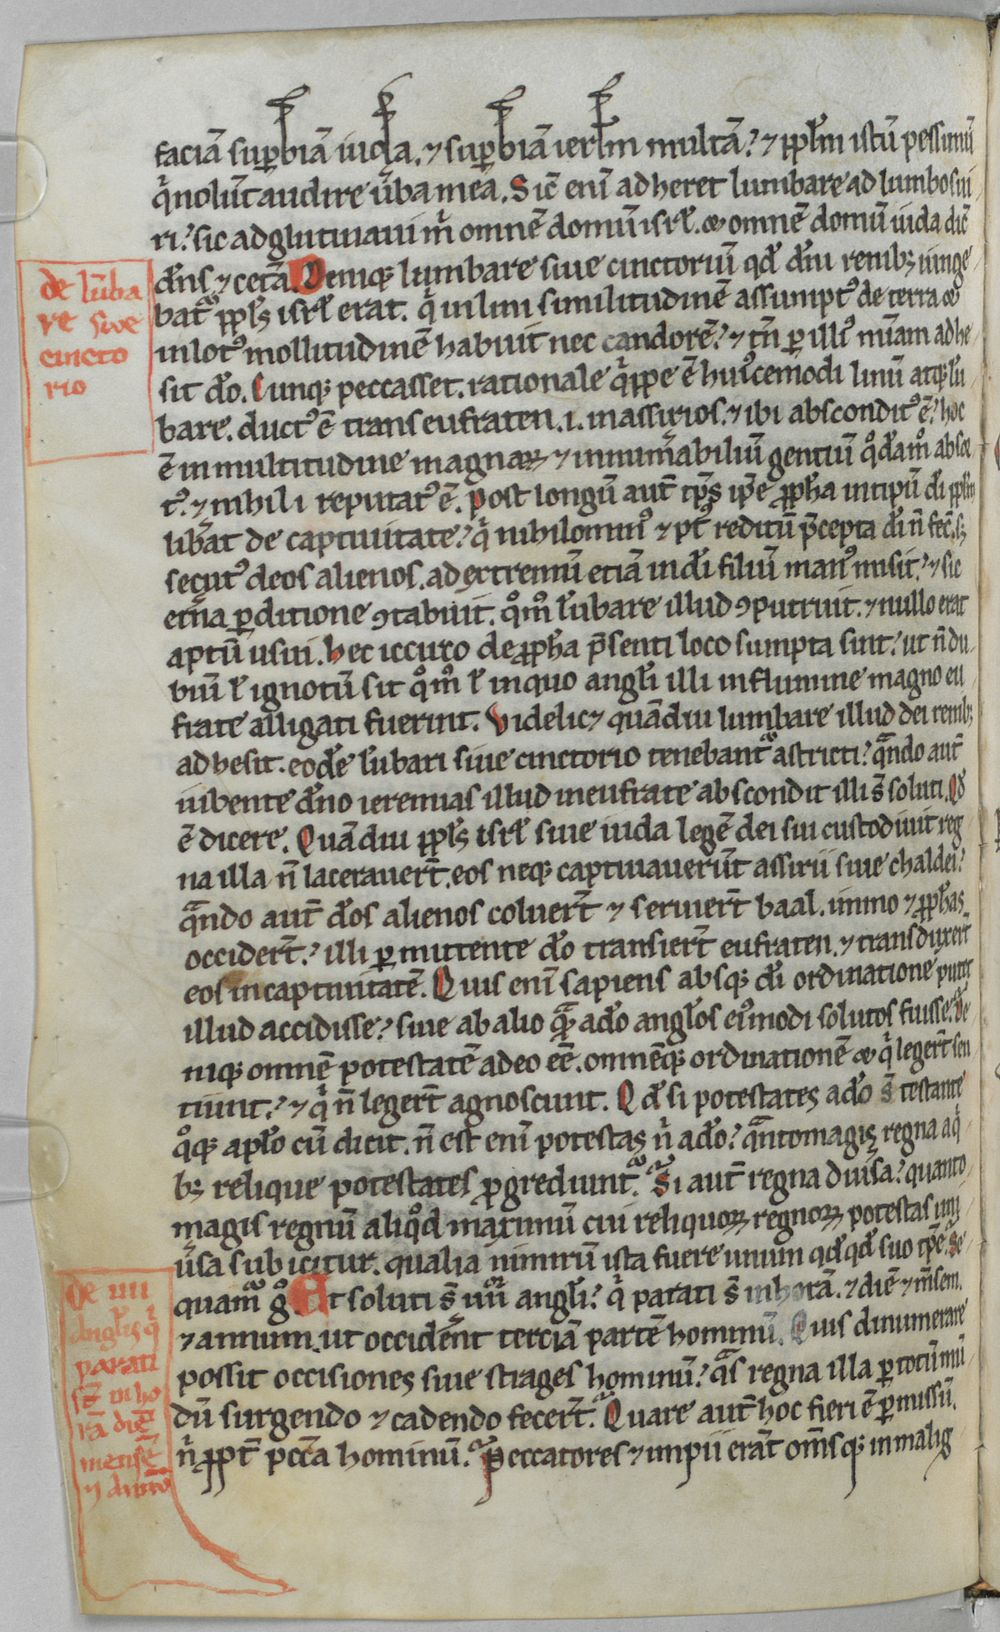 faciā supbiā iuda. ⁊ supbiā ierl̄m multā? ⁊ ppl̄m istū pessimū
q̇ nolūt audire ūba mea. Sic̄ enī adheret lumbare ad lumbos ui
ri? sic adglutinaui m̄ omnē domū isrł. & omnē domū iuda dic̄
dn̄s ⁊ cetā. Deniq; lumbare siue cinctoriū qd̄ dn̄i renib; iunge
bat᷑ ppl̄s isrł erat. q̇ in lini similitudinē assumptꝰ de terra &
inlotꝰ mollitudinē habuit nec candorē? ⁊ tn̄ p illiꝰ mīam adhe
sit dō. Cunq; peccasset. rationale q̇ppe ē huꝰcemodi linū atq; lū
bare. ductꝰ ē trans eufraten .i. in assirios. ⁊ ibi absconditꝰ ē? hoc
ē in multitudine magnaꝝ ⁊ innum̄abiliū gentiū qd̄am̊ absor
tꝰ ⁊ nihili reputatꝰ ē. post longū aut̄ tp̄s ip̄e ppha in tipū dī ppl̄m
lib̄at de captiuitate? q̇ nihilominꝰ ⁊ pt̄ reditū p̄cepta dī n̄ fec̄. s;
secutꝰ deos alienos. ad extremū etiā in dī filiū manꝰ misit? ⁊ sic
et̄na pditione ꝯtabuit. qm̊ lūbare illud ꝯputruit. ⁊ nullo erat
aptū usui. hec iccirco de ppha p̄senti loco sumpta sint? ut n̄ du
biū l ignotū sit qm̊ l in quo angłi illi in flumine magno eu
frate alligati fuerint. Videlic⁊ quādiu lumbare illud dei renib;
adhesit. eodē lūbari siue cinctorio tenebant᷑ astricti? qͣndo aut̄
iubente dn̄o ieremias illud in eufrate abscondit illi s̄ soluti. Qd̄
ē dicere. Quādiu ppl̄s isrł siue iuda legē dei sui custodiuit reg
na illa n̄ laceraver̄t. eos neq; captiuaverūt assirii siue chaldei?
qͣndo aut̄ dōs alienos coluer̄t ⁊ seruier̄t baal. immo ⁊ pphas
occider̄t? illi pmittente dō transier̄t eufraten. ⁊ transduxer̄t
eos in captiuitatē. Quis enī sapiens absq; dī ordinatione putet
illud accidisse? siue ab alio qͣ̄ a dō angłos eiꝰmodi solutos fuisse. De
niq; omnē potestatē a deo eē. omnēq; ordinationē & q̇ leger̄t sen
tiunt? ⁊ q̇ n̄ leger̄t agnoscunt. Qd̄ si potestates a dō s̄ testante
qͦq; apłō cū dicit. n̄ est enī potestas n̄ a dō? qͣntomagis regna a q̇
b; relique potestates pgrediunt᷑. Si aut̄ regna diuisa? quanto
magis regnū aliqͦd maximū cui reliquoꝝ regnoꝝ potestas uni
ūsa subicitur. qualia nimirū ista fuere unum qd̄qd̄ suo tp̄e. Se
quam᷑ g̊. Et soluti s̄ iiiior angłi? q̇ parati s̄ in horā. ⁊ diē ⁊ m̄sem.
⁊ annum. ut occiderent terciā partē hominū. Quis dinumerare
possit occisiones siue strages hominū? qͣs regna illa p totū mū
dū surgendo ⁊ cadendo fecer̄t. Quare aut̄ hoc fieri ē pmissū.
n̄ ppt̄ pcc̄a hominū. Peccatores ⁊ impii erāt om̄sq; in malig
de lūba
re siue
cincto
rio
De iiii
anglis q̇
parati
st̄ in ho
rā diē
mensē
⁊ annū